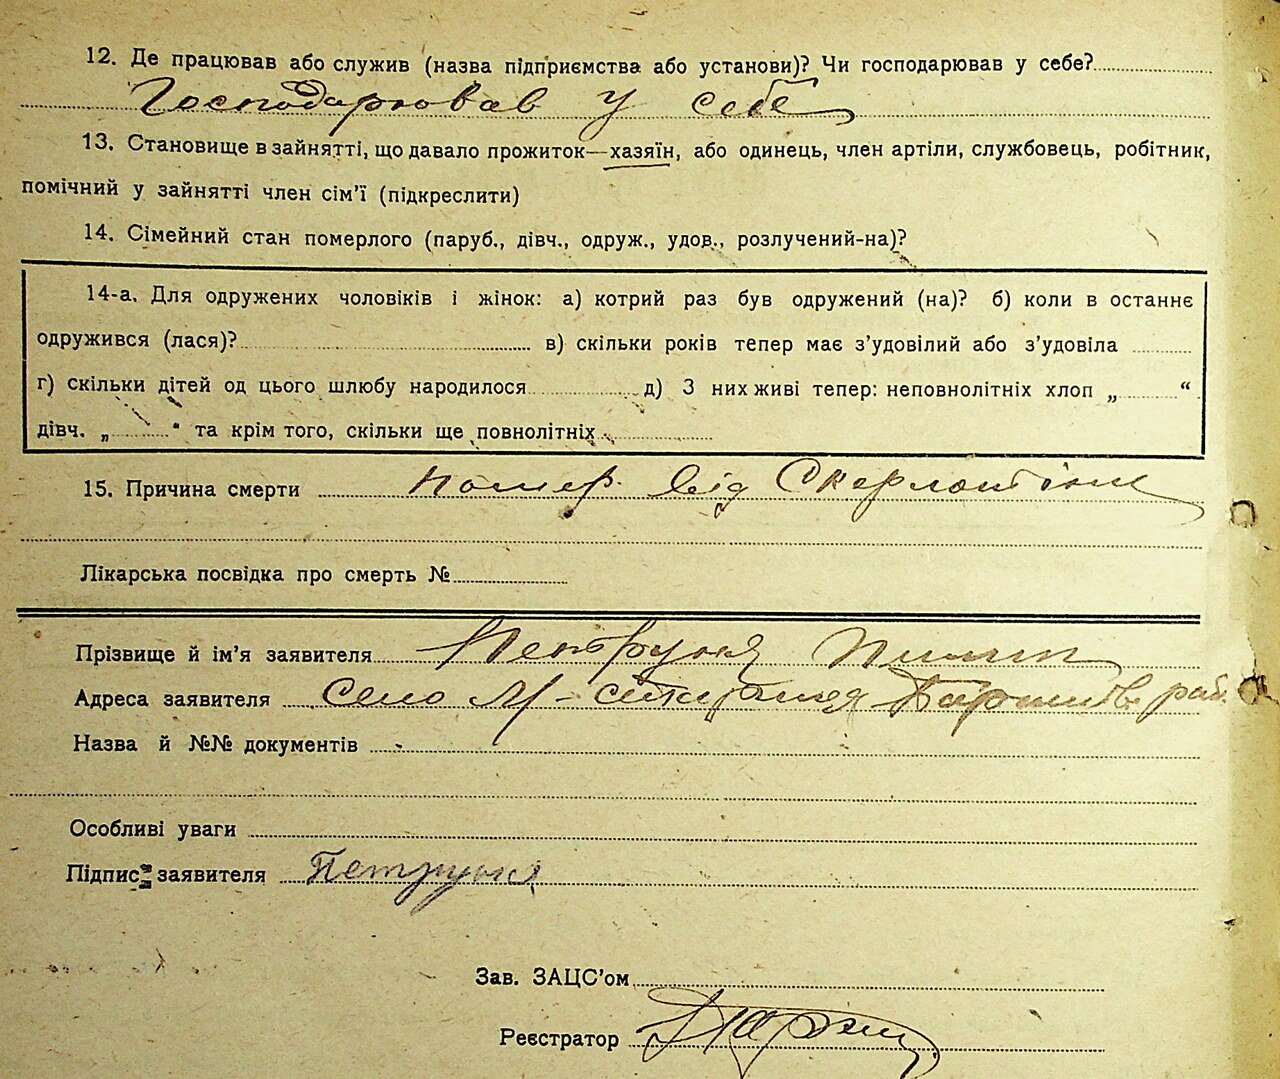 12. Де працював або служив (назва підприємства або установи)? Чи господарював у себе?
Господарював у себе
13. Становище в зайнятті, що давало прожиток—хазяїн, або одинець, член артіли, службовець, робітник,
помічний у зайнятті член сім'ї (підкреслити)
14. Сімейний стан померлого (паруб., дівч., одруж., удов., розлучений-на)?
14-а. Для одружених чоловіків і жінок: а) котрий раз був одружений (на)? б) коли в останнє
одружився (лася)? в) скільки років тепер має з'удовілий або з'удовіла
г) скільки дітей од цього шлюбу народилося д) З них живі тепер: неповнолітніх хлоп „ “
дівч. „ “ та крім того, скільки ще повнолітніх
15. Причина смерти помер від Скарлатіни
Лікарська посвідка про смерть №
Прізвище й ім'я заявителя Петруня Пилип
Адреса заявителя село М- рай.
Назва й №№ документів
Особливі уваги
Підпис заявителя Петруня
Зав. ЗАЦС'ом
Реєстратор